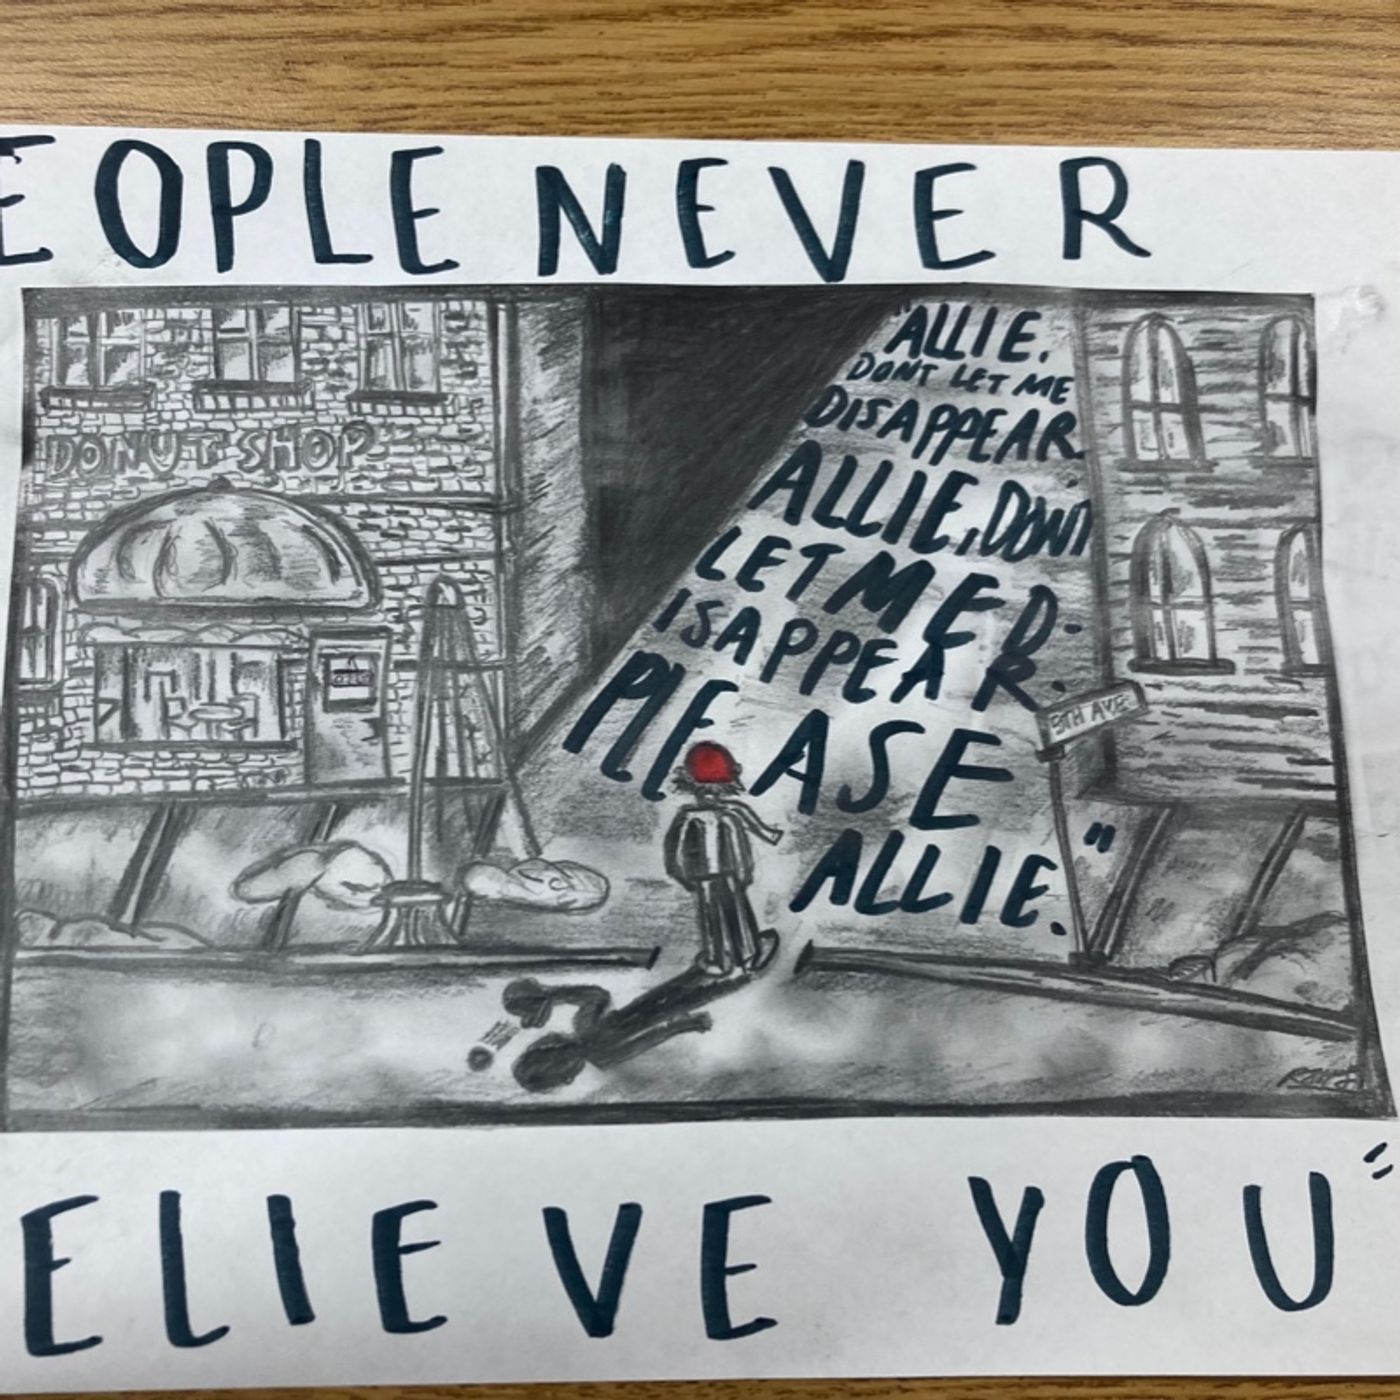 EOPLE NEVER
"ALLIE.
DONT LET ME
DISAPPEAR.
ALLIE, DON'T
LET ME D-
ISAPPEAR.
PLEASE
ALLIE."
DONUT SHOP
5TH AVE
ELIEVE YOU"